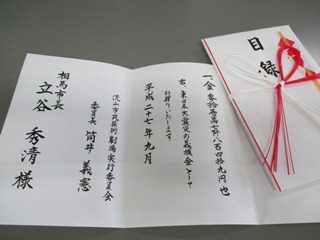 目録
一、金 参拾壱万六阡八百四拾九円也
右、東日本大震災の義援金として
お贈りいたします
平成二十七年九月
流山市民芸術劇場実行委員会
委員長 筒井 義憲
相馬市長
立谷 秀清 様